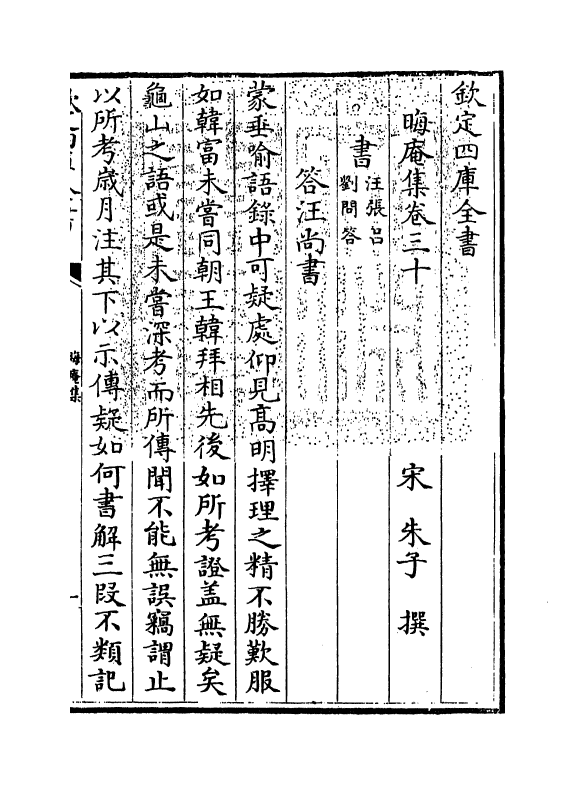 欽定四庫全書
晦庵集卷三十
宋 朱子 撰
書
汪張呂
劉問答
答汪尚書
蒙垂喻語錄中可疑處仰見髙明擇理之精不勝歎服
如韓富未嘗同朝王韓拜相先後如所考證盖無疑矣
龜山之語或是未嘗深考而所傳聞不能無誤竊謂止
以所考歳月注其下以示傳疑如何書解三段不類記
晦庵集
一